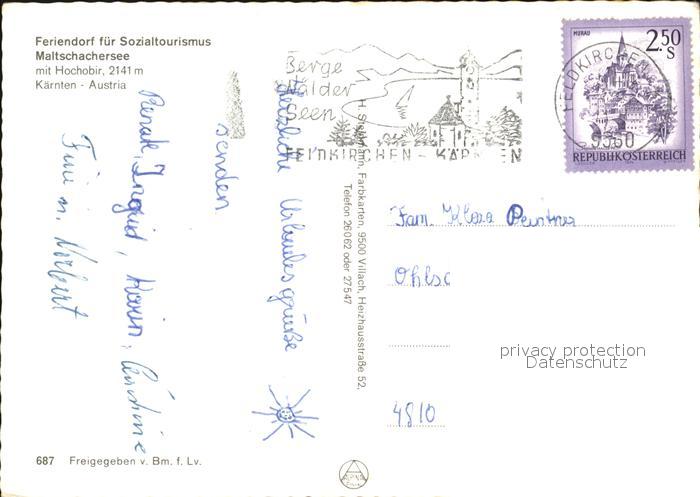 Feriendorf für Sozialtourismus
Maltschachersee
mit Hochobir, 2141 m
Kärnten - Austria
Berge
Wälder
Seen
FELDKIRCHEN - KÄRNTEN
FELDKIRCHEN
9560
MURAU
2.50
S
REPUBLIK ÖSTERREICH
Herzliche Urlaubsgrüße
senden
Renate, Ingrid,
Fam.
4810
H. Schiffmann, Farbkarten, 9500 Villach, Heizhausstraße 52,
Telefon 26062 oder 27547
privacy protection
Datenschutz
687 Freigegeben v. Bm. f. Lv.